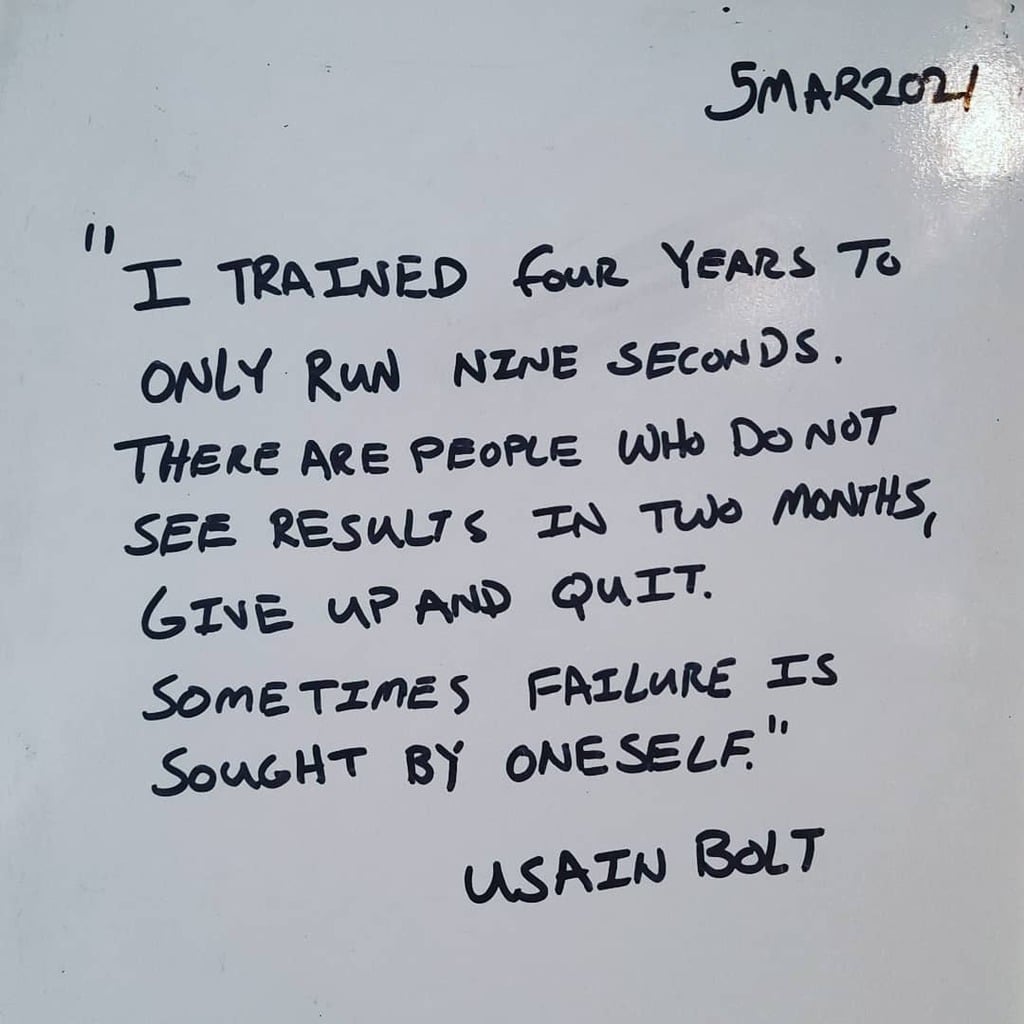 5MAR2021
"I TRAINED FOUR YEARS TO
ONLY RUN NINE SECONDS.
THERE ARE PEOPLE WHO DO NOT
SEE RESULTS IN TWO MONTHS,
GIVE UP AND QUIT.
SOMETIMES FAILURE IS
SOUGHT BY ONESELF."
USAIN BOLT